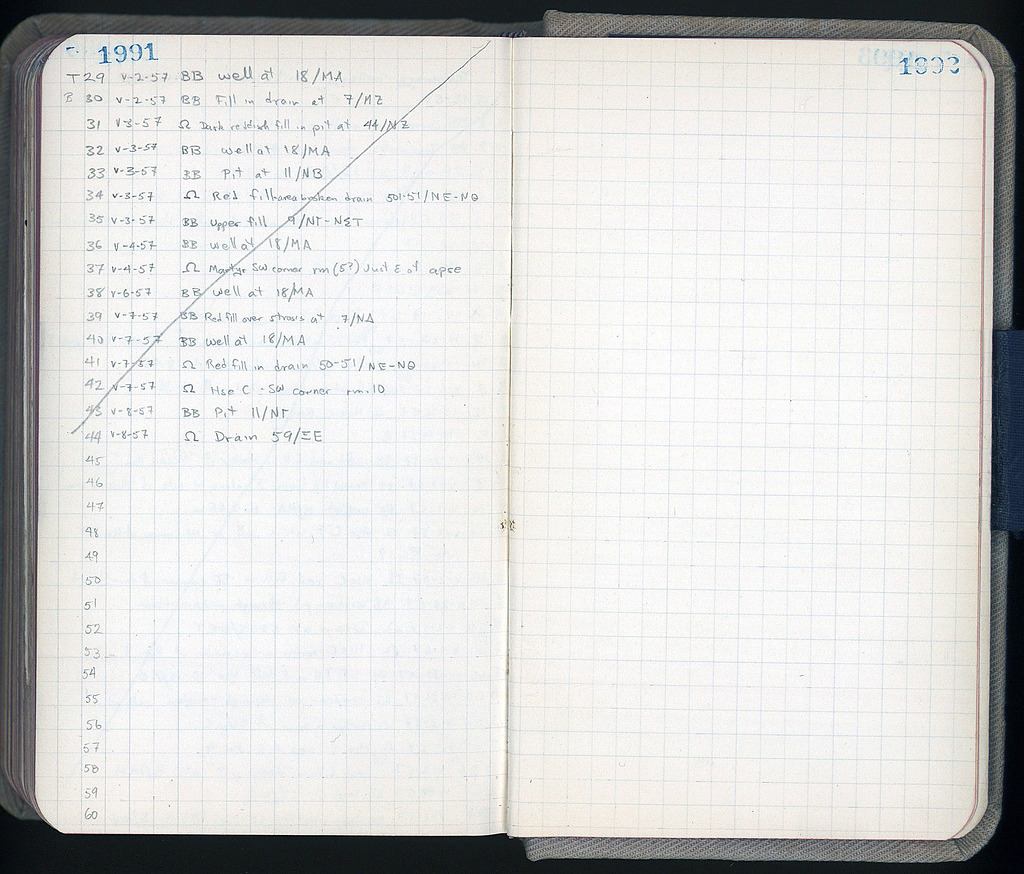 1991
T 29 V-2-57 BB well at 18/MA
B 30 V-2-57 BB Fill in drain at 7/MZ
31 V-3-57 Ω Dark reddish fill in pit at 44/NZ
32 V-3-57 BB well at 18/MA
33 V-3-57 BB Pit at 11/NB
34 V-3-57 Ω Red fill broken drain 501-51/NE-NΘ
35 V-3-57 BB Upper fill 9/NT-NΣT
36 V-4-57 BB well at 18/MA
37 V-4-57 Ω Martyr SW corner rm (5?) Just E of apse
38 V-6-57 BB well at 18/MA
39 V-7-57 BB Red fill over strosis at 7/NA
40 V-7-57 BB well at 18/MA
41 V-7-57 Ω Red fill in drain 50-51/NE-NΘ
42 V-7-57 Ω Hse C - SW corner rm. 10
43 V-8-57 BB Pit 11/NT
44 V-8-57 Ω Drain 59/ΞE
45
46
47
48
49
50
51
52
53
54
55
56
57
58
59
60
1992